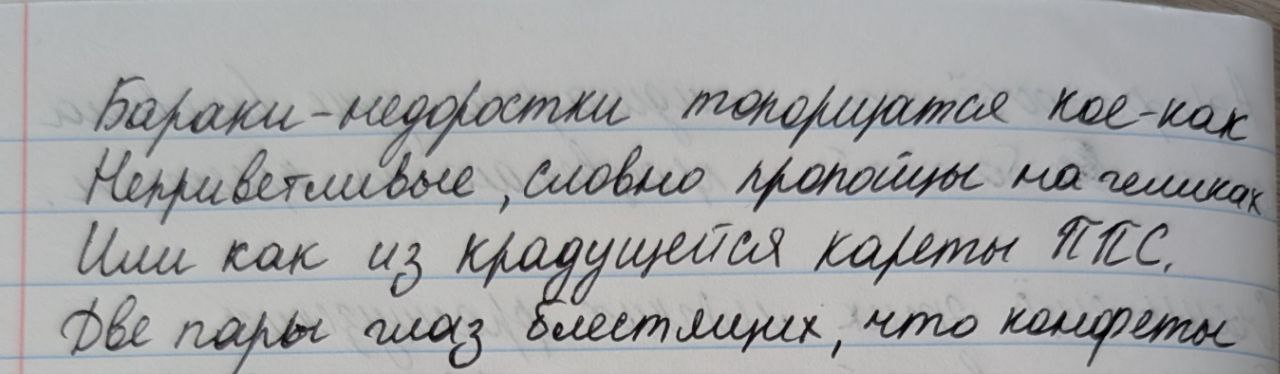 Бараки-недоростки топорщатся кое-как
Неприветливые, словно пропойцы на геликах
Или как из крадущейся кареты ППС.
Две пары глаз блестящих, что конфеты